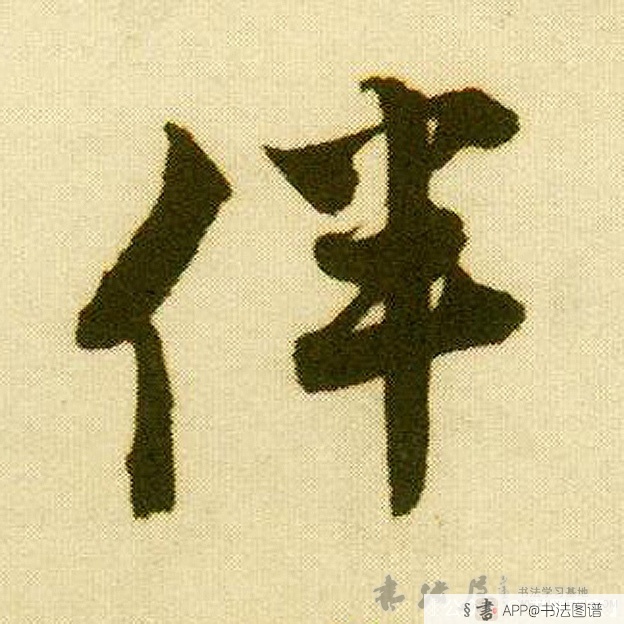 伴
书法学习基地
§書 APP@书法图谱